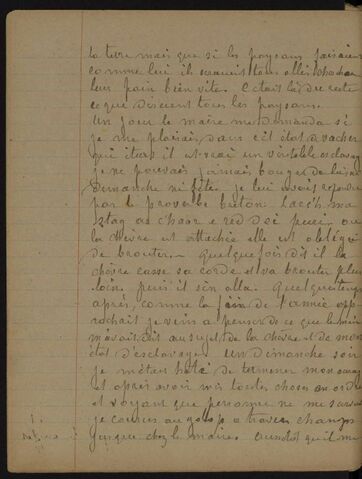 la terre mais que si les paysans faisaient
comme lui ils seraient tous allés chercher
leur pain bien vite. C'était là du reste
ce que disaient tous les paysans.
Un jour le maire me demanda si
je me plaisais, dans cet état de vacher
qui était il est vrai un véritable esclavage
je ne pouvais jamais bouger de là ni
Dimanche ni fête. je lui avais répondu
par le proverbe breton: lac'h ma
stag ar chaor e red dei peuri ou
la chèvre est attachée elle est obligée
de brouter. Quelque fois dit il la
chèvre casse sa corde et va brouter plus
loin. puis il s'en alla. Quelque temps
après, comme la fin de l'année app
rochait je vein a penser de ce que le maire
m'avait dit au sujet de la chèvre et de mon
état d'esclavage. Un dimanche soir
je m'étais hâté de terminer mon ouvrage
et après avoir mis toutes choses en ordre
et voyant que personne ne me
je courus au galop a travers champs
jusque chez le maire. aussitôt qu'il me